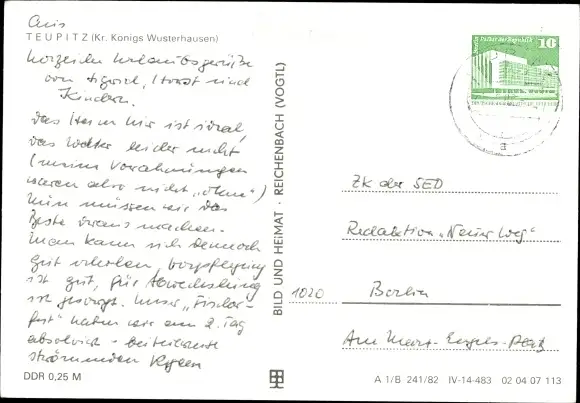 Aus
TEUPITZ (Kr. Königs Wusterhausen)
herzliche Urlaubsgrüße
von Sigrid, Horst und
Kindern.
Das Heim hier ist ideal,
das Wetter leider nicht
(meine Vorahnungen
waren also nicht „ohne“)
Nun müssen wir das
Beste draus machen.
Man kann sich dennoch
gut erholen, Verpflegung
ist gut, für Abwechslung
ist gesorgt. Unser „Fischer-
fest“ haben wir am 2. Tag
absolviert - bei
strömenden Regen
DDR 0,25 M
BILD UND HEIMAT · REICHENBACH (VOGTL)
Palast der Republik 10
ZK der SED
Redaktion „Neuer Weg“
1020 Berlin
Am Marx-Engels-Platz
A 1/B 241/82 IV-14-483 02 04 07 113